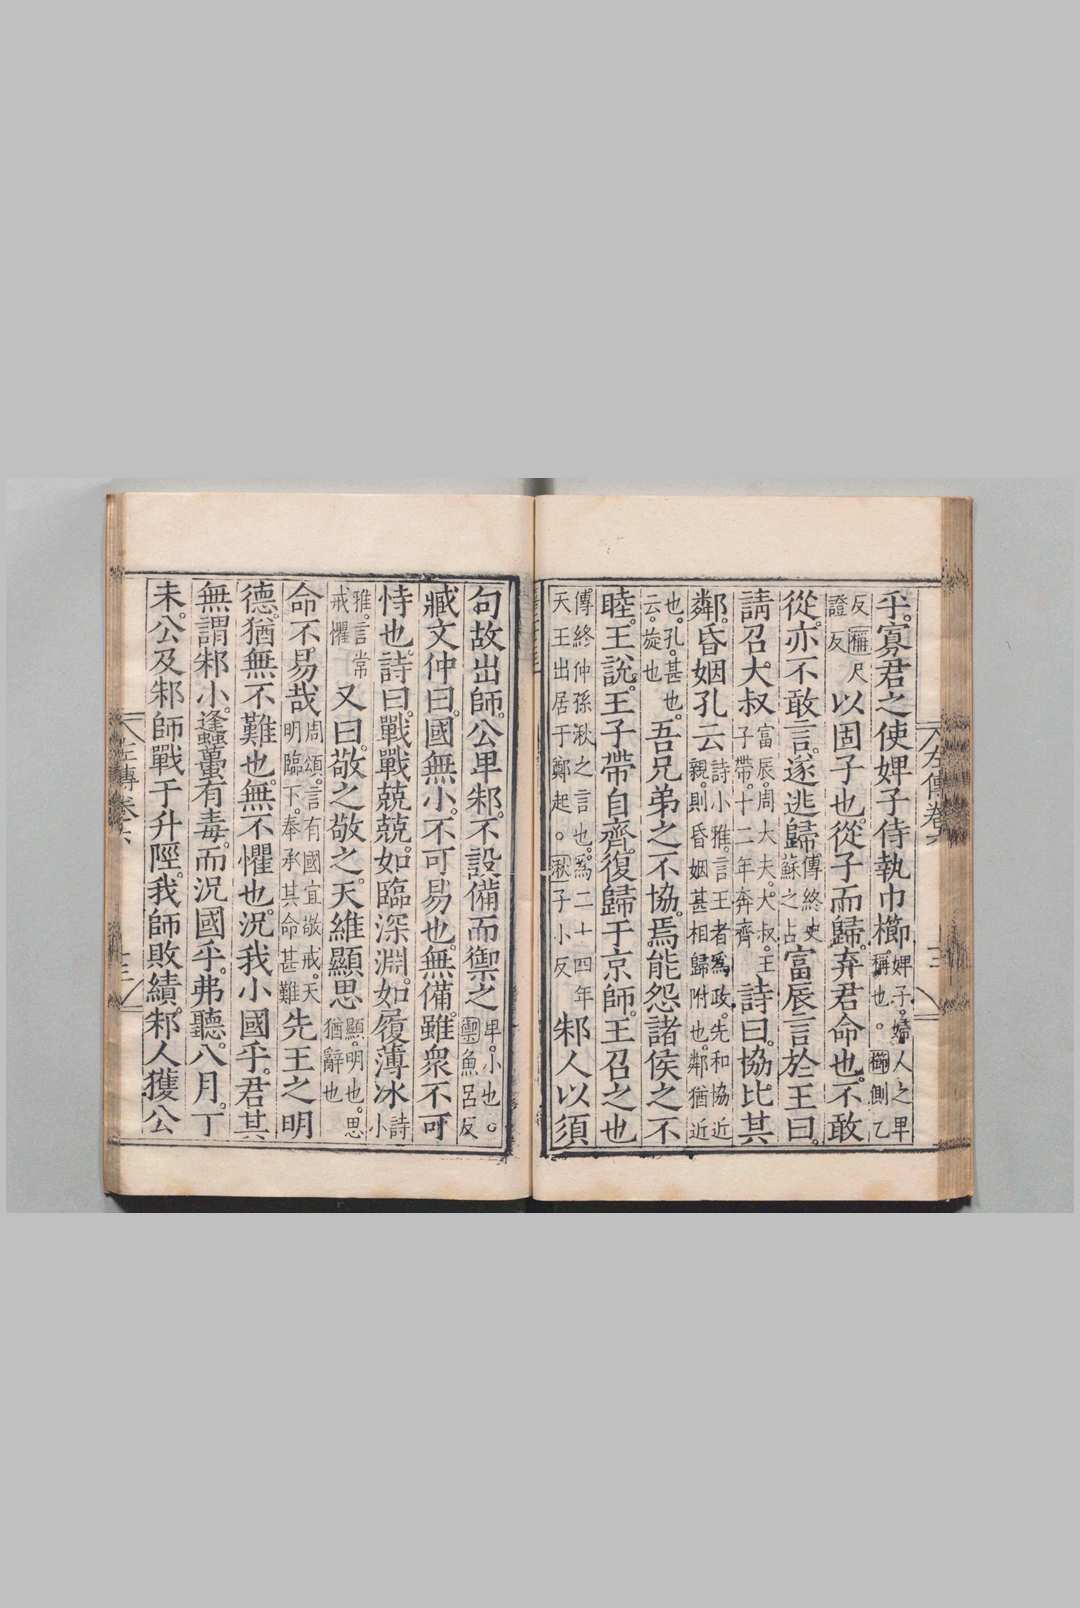 左傳卷六 十三
乎。寡君之使婢子侍執巾櫛婢子。婦人之卑稱也。○櫛側乙
反稱尺證反以固子也。從子而歸。弃君命也。不敢
從。亦不敢言。遂逃歸傳終史蘇之占富辰言於王曰。
請召大叔富辰。周大夫。大叔。王子帶。十二年奔齊詩曰。協比其
鄰。昏姻孔云詩小雅。言王者爲政。先和協近親。則昏姻甚相歸附也。鄰猶近
也。孔。甚也。云。旋也吾兄弟之不協。焉能怨諸侯之不
睦。王說。王子帶自齊。復歸于京師。王召之也
傳終仲孫湫之言也。爲二十四年天王出居于鄭起。○湫子小反邾人以須
句故出師。公卑邾。不設備而禦之卑。小也。○禦魚呂反
臧文仲曰。國無小。不可易也。無備。雖衆不可
恃也。詩曰。戰戰兢兢。如臨深淵。如履薄冰詩小
雅。言常戒懼又曰。敬之敬之。天維顯思顯。明也。思猶辭也
命不易哉周頌。言有國宜敬戒。天明臨下。奉承其命甚難先王之明
德。猶無不難也。無不懼也。況我小國乎。君其
無謂邾小。蠭蠆有毒。而況國乎。弗聽。八月。丁
未。公及邾師戰于升陘。我師敗績。邾人獲公
左傳卷六 十三